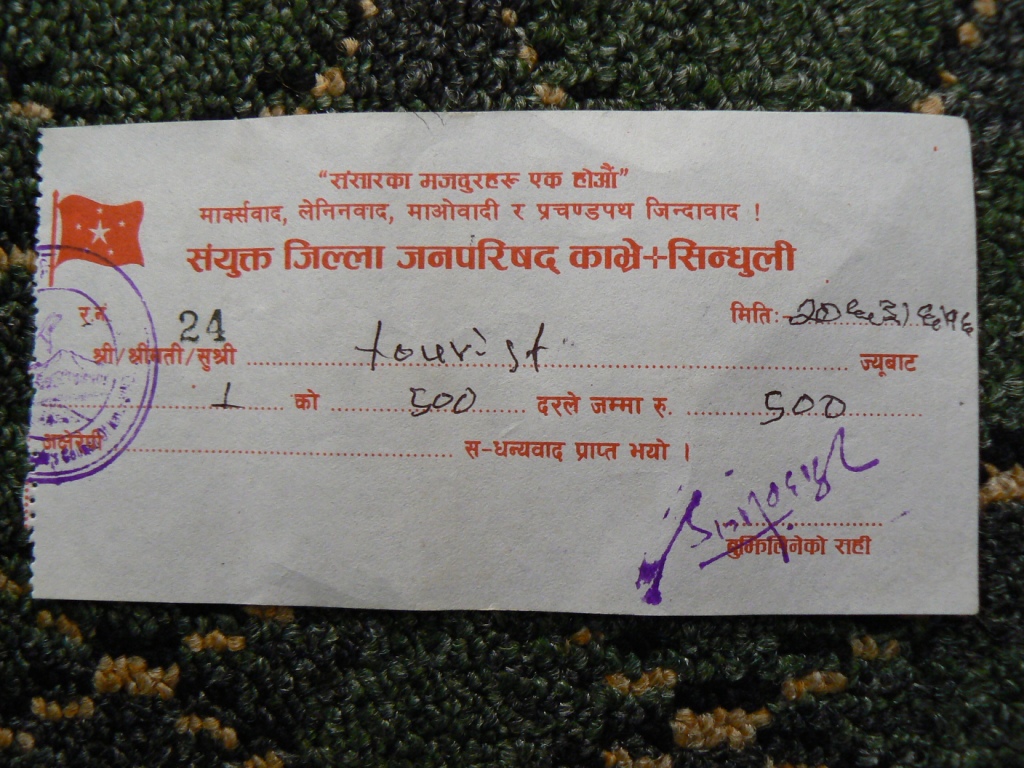 “संसारका मजदुरहरू एक होऔं”
मार्क्सवाद, लेनिनवाद, माओवादी र प्रचण्डपथ जिन्दावाद !
संयुक्त जिल्ला जनपरिषद् काभ्रे+सिन्धुली
र.नं. 24 मिति:
श्री/श्रीमती/सुश्री tourist ज्यूबाट
1 को 500 दरले जम्मा रु. 500
अक्षेरुपी स-धन्यवाद प्राप्त भयो ।
बुझिलिनेको सही